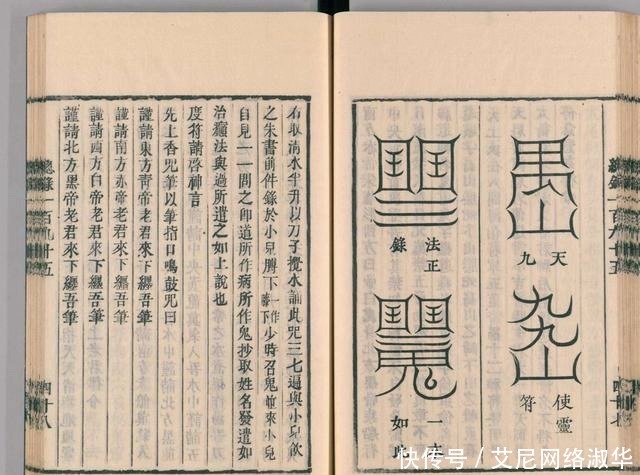 總錄一百九十五
四十七
天
九
使靈
符
法正
錄
一本
如此
右取清水半升以刀子攪水誦此咒三七遍與小兒飲
之朱書前件籙於小兒膊下一作膝下少時召鬼並來小兒
自見一一問之即道所作病所作鬼抄取姓名發遣如
治癲法與過所遣之如上說也
度符請啓神言
先上香咒筆以筆指日鳴鼓咒曰
謹請東方青帝老君來下纏吾筆
謹請南方赤帝老君來下纏吾筆
謹請西方白帝老君來下纏吾筆
謹請北方黑帝老君來下纏吾筆
總錄一百九十五
四十八
快传号 / 艾尼网络淑华